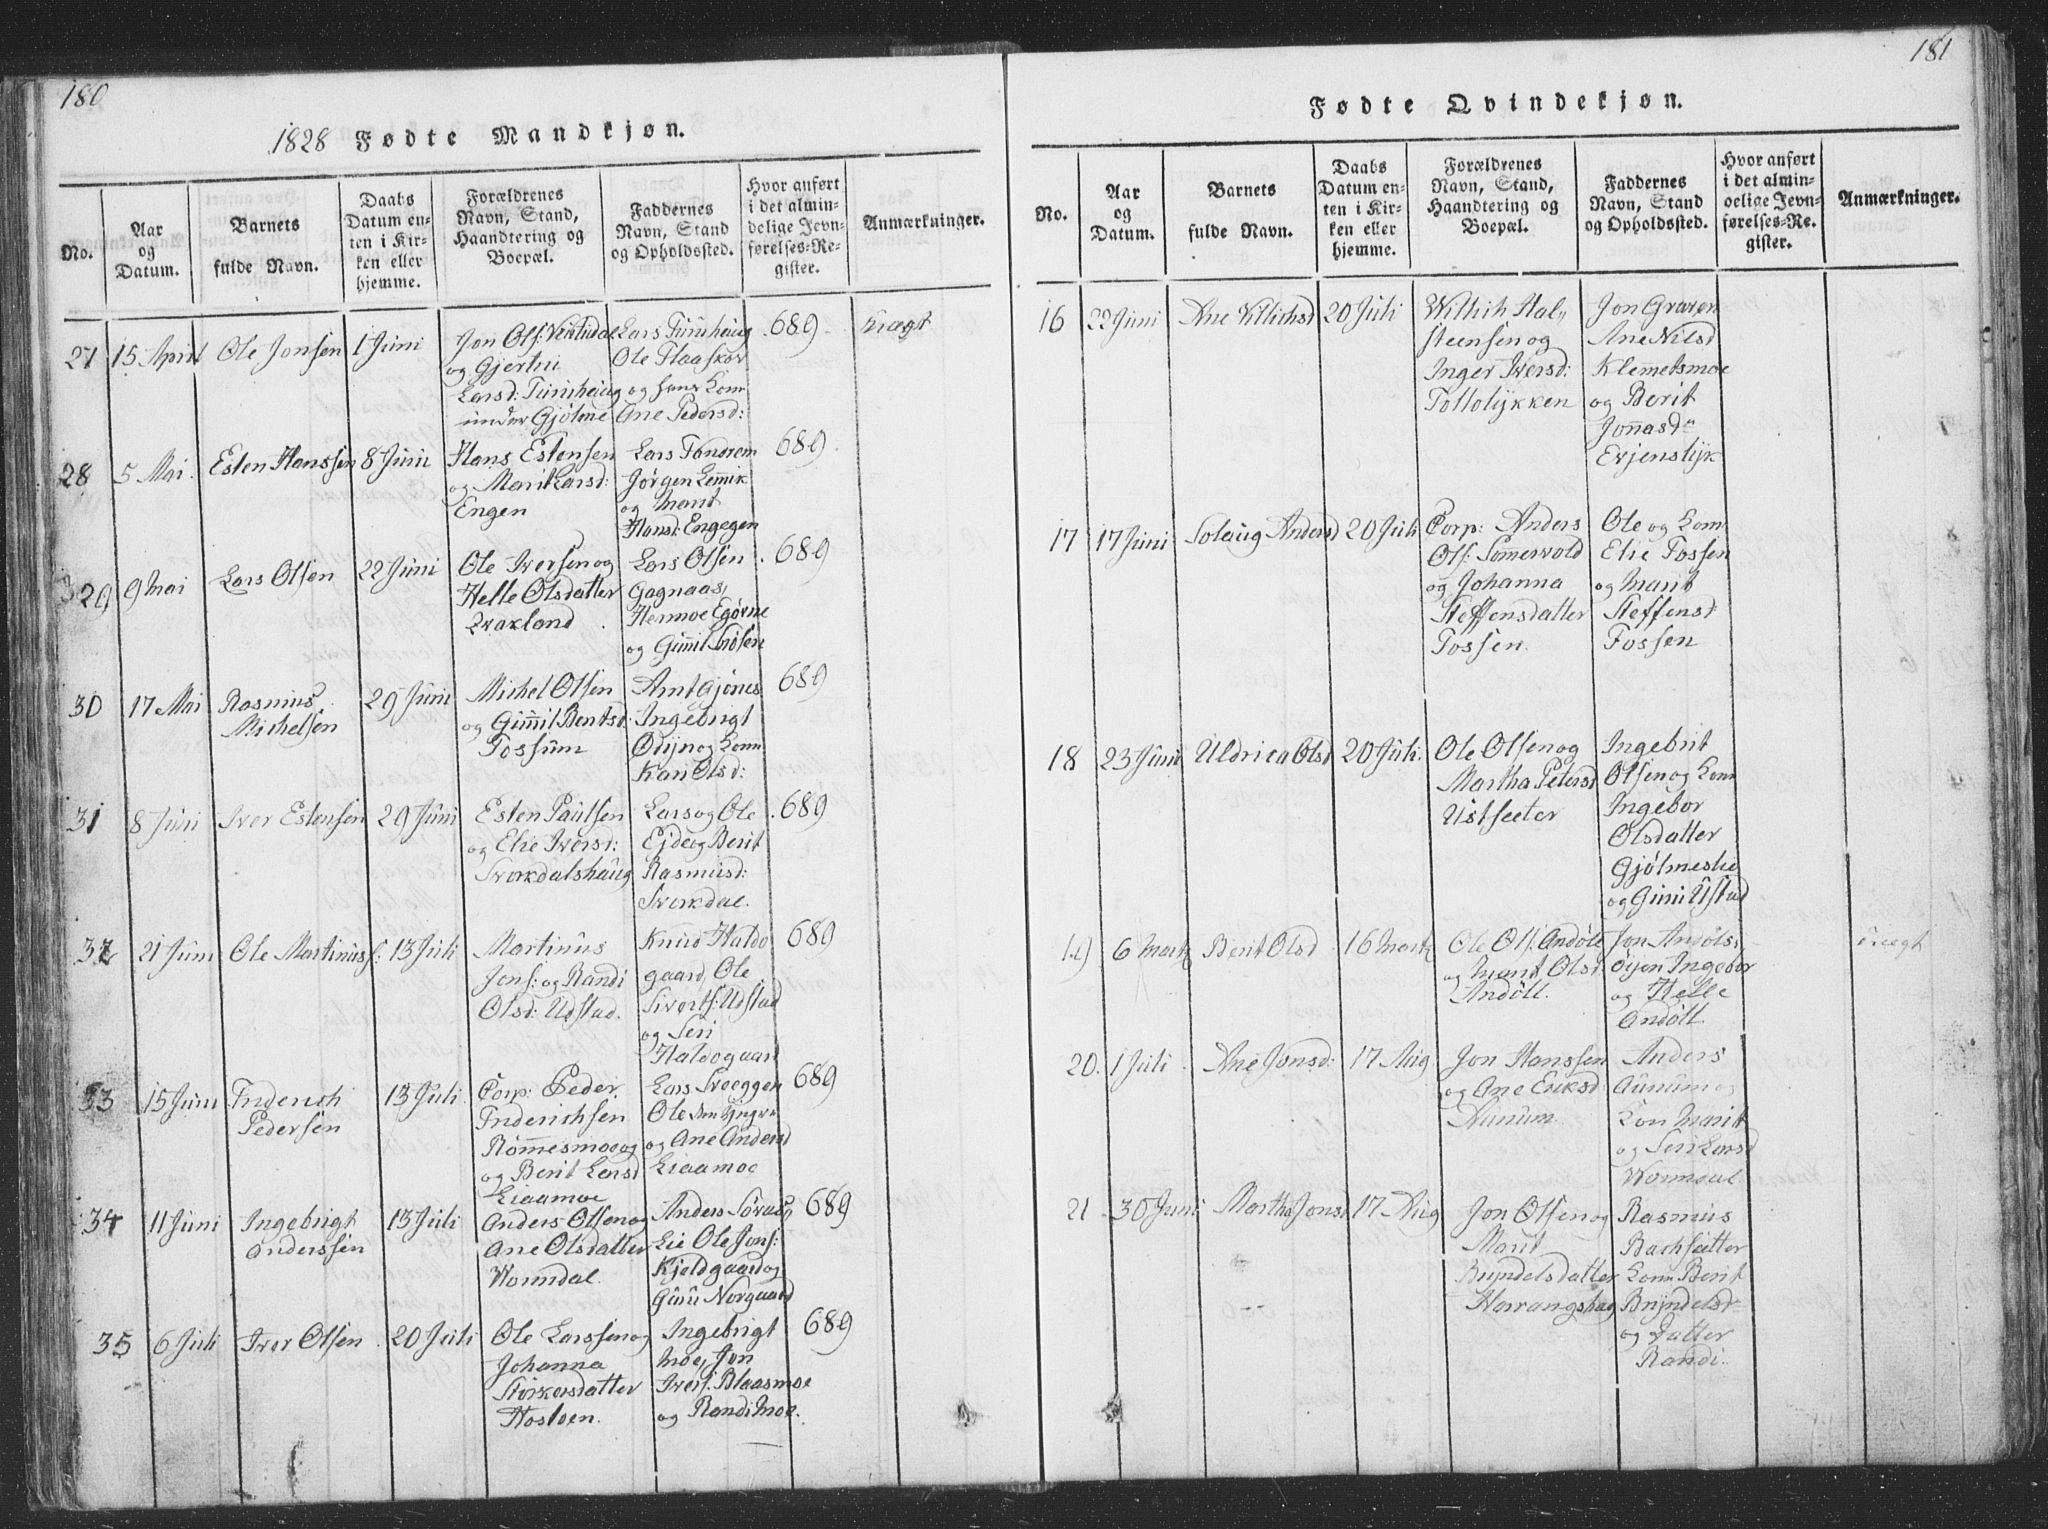 180
1828 Fødte Mandkjøn.
No.
Aar
og
Datum.
Barnets
fulde Navn.
Daabs
Datum en-
ten i Kir-
ken eller
hjemme.
Forældrenes
Navn, Stand,
Haandtering og
Boepæl.
Faddernes
Navn, Stand
og Opholdssted.
Hvor anført
i det almin-
delige Jevn-
førelses-Re-
gister.
Anmærkninger.
27
15 April
Ole Jonsen
1 Juni
Jon Ols:
og Gjertru
Larsd:
under Gjølme
Lars
Ole Flaaskov
og hans kone
Ane Pedersd:
689
uægt
28
5 Mai
Esten Hanssen
8 Juni
Hans Estensen
og Marit Larsd:
Engen
Lars
Jørgen
og Marit
Hansd: Engegen
689
29
9 Mai
Lars Olsen
22 Juni
Ole Iversen og
Helle Olsdatter
Qvakland
Lars Olsen
Gagnaas,
og
689
30
17 Mai
Rasmus
Michelsen
29 Juni
Michel Olsen
og Gunnil Bentsd:
Fossum
Arnt Gjønes
Ingebrigt
Kari Olsd:
689
31
8 Juni
Iver Estensen
29 Juni
Esten Paulsen
og Elie Iversd:
Svorkdalshaug
Lars og Ole
Ejde og Berit
Rasmusd:
Svorkdal.
689
32
21 Juni
Ole Martinuss:
13 Juli
Martinus
Jons: og Randi
Olsd: Udstad.
Knud Haldo
gaard, Ole
Siverts: Udstad
og Seri
Haldogaard
689
33
15 Juni
Friderich
Pedersen
13 Juli
Corp: Peder
Friderichsen
Rømmesmoe og
og Berit Larsd
Liaamoe
Lars Svoeggen
Ole
og Ane Andersd
Liaamoe
689
34
11 Juni
Ingebrigt
Anderssen
13 Juli
Anders Olsen og
Ane Olsdatter
Wormdal
Anders
Lie Ole Jons:
Kjeldgaard og
Guru Norgaard
689
35
6 Juli
Iver Olsen
20 Juli
Ole Larssen og
Johanna
Størkersdatter
Hostoen.
Ingebrigt
Moe, Jon
Ivers: Blaasmoe
og Randi Moe.
689
181
Fødte Qvindekjøn.
No.
Aar
og
Datum.
Barnets
fulde Navn.
Daabs
Datum en-
ten i Kir-
ken eller
hjemme.
Forældrenes
Navn, Stand,
Haandtering og
Boepæl.
Faddernes
Navn, Stand
og Opholdssted.
Hvor anført
i det almin-
delige Jevn-
førelses-Re-
gister.
Anmærkninger.
16
22 Juni
Ane Villichsd
20 Juli
Willich Hal,,
steensen og
Inger Iversd:
Tollolykken
Jon Graven
Ane Nilsd
Klemetsmoe
og Berit
Jonasd
Evjenslyk
17
17 Juni
Solaug Andersd
20 Juli
Corp: Anders
Ols: Sommervold
og Johanna
Steffensdatter
Fossen.
Ole og kone
Elie Fossen
og Marit
Steffensd:
Fossen
18
23 Juni
Uldrica Olsd
20 Juli
Ole Olsen og
Martha Petersd
Ustsæter
Ingebrit
Olsen og kone
Ingebor
Olsdatter
Gjølmeslie
og Guru Ustad
19
6 Martz
Berit Olsd
16 Martz
Ole Ols: Andøle
og Marit Olsd
Andøll.
Jon Andøls,
øijen Ingebor
og Helle
Andøll.
uægt
20.
1 Juli
Ane Jonsd:
17 Aug
Jon Hanssen
og Ane Eriksd
Aunum
Anders
Aunum og
kon Marit
og Seri Larsd
Wormdal
21
30 Juni
Martha Jonsd
17 Aug
Jon Olsen og
Marit
Bryndelsdatter
Rasmus
Bachsætter
kone Berit
Bryndelsd
og Datter
Randi.